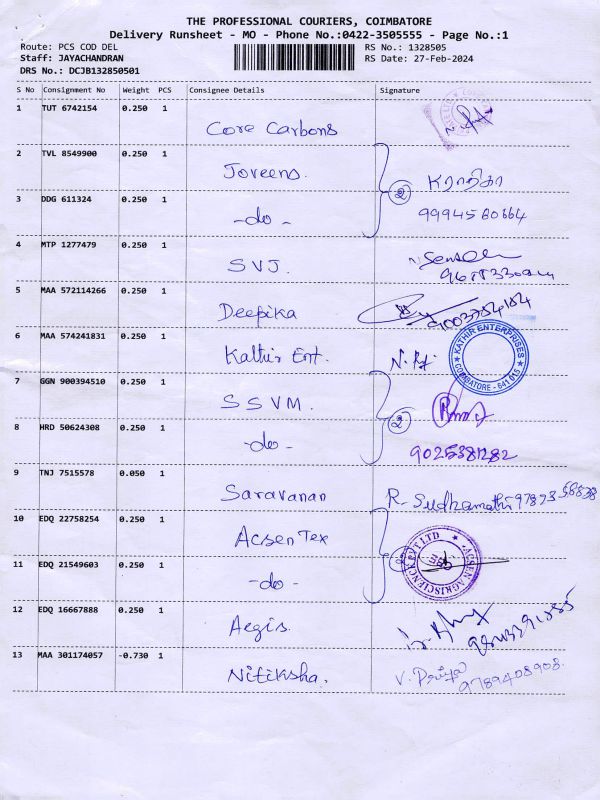 THE PROFESSIONAL COURIERS, COIMBATORE
Delivery Runsheet - MO - Phone No.:0422-3505555 - Page No.:1
Route: PCS COD DEL RS No.: 1328505
Staff: JAYACHANDRAN RS Date: 27-Feb-2024
DRS No.: DCJB132850501
S No Consignment No Weight PCS Consignee Details Signature
1 TUT 6742154 0.250 1 Core Carbons
2 TVL 8549900 0.250 1 Joveens. 2 கராதிகா
3 DDG 611324 0.250 1 -do- 9994560664
4 MTP 1277479 0.250 1 SVJ.
5 MAA 572114266 0.250 1 Deepika
6 MAA 574241831 0.250 1 Kathir Ent. KATHIR ENTERPRISES COIMBATORE - 641 015
7 GGN 900394510 0.250 1 SSVM.
8 HRD 50624308 0.250 1 -do- 2 9025381282
9 TNJ 7515578 0.050 1 Saravanan R. Sudhamathi 97873 58838
10 EDQ 22758254 0.250 1 Acsen Tex
11 EDQ 21549603 0.250 1 -do- ACSEN AGRISCIENCE PVT LTD
12 EDQ 16667888 0.250 1 Aegis.
13 MAA 301174057 -0.730 1 Nitiksha. V. Priya 9789408908.